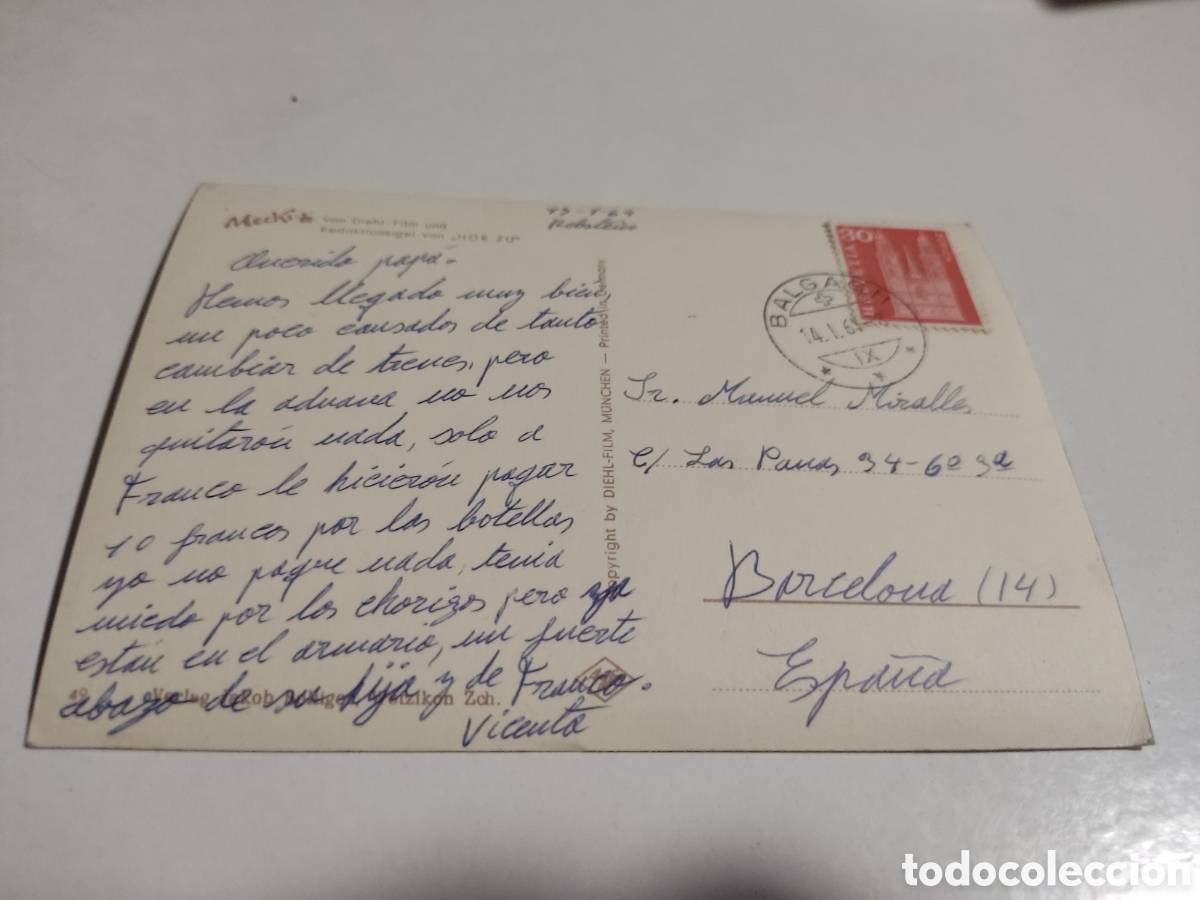 Mecki
von Diehl-Film und
Redaktionsigel von „HÖR ZU"
Querido papá-
Hemos llegado muy bien,
un poco cansados de tanto
cambiar de trenes, pero
en la aduana no nos
quitarón nada, solo a
Franco le hicierón pagar
10 francos por las botellas
yo no pague nada, tenia
miedo por los chorizos pero ya
están en el armario, un fuerte
abazo de su hija y de Franco.
Vicenta
49
Verlag Jakob Zch.
Copyright by DIEHL-FILM, MÜNCHEN — Printed in Germany
30
HELVETIA
BALGACH
14.1.6
IX
Sr. Manuel Miralles
C/ Las Panas 34-6º 3ª
Barcelona (14)
España
todocoleccion